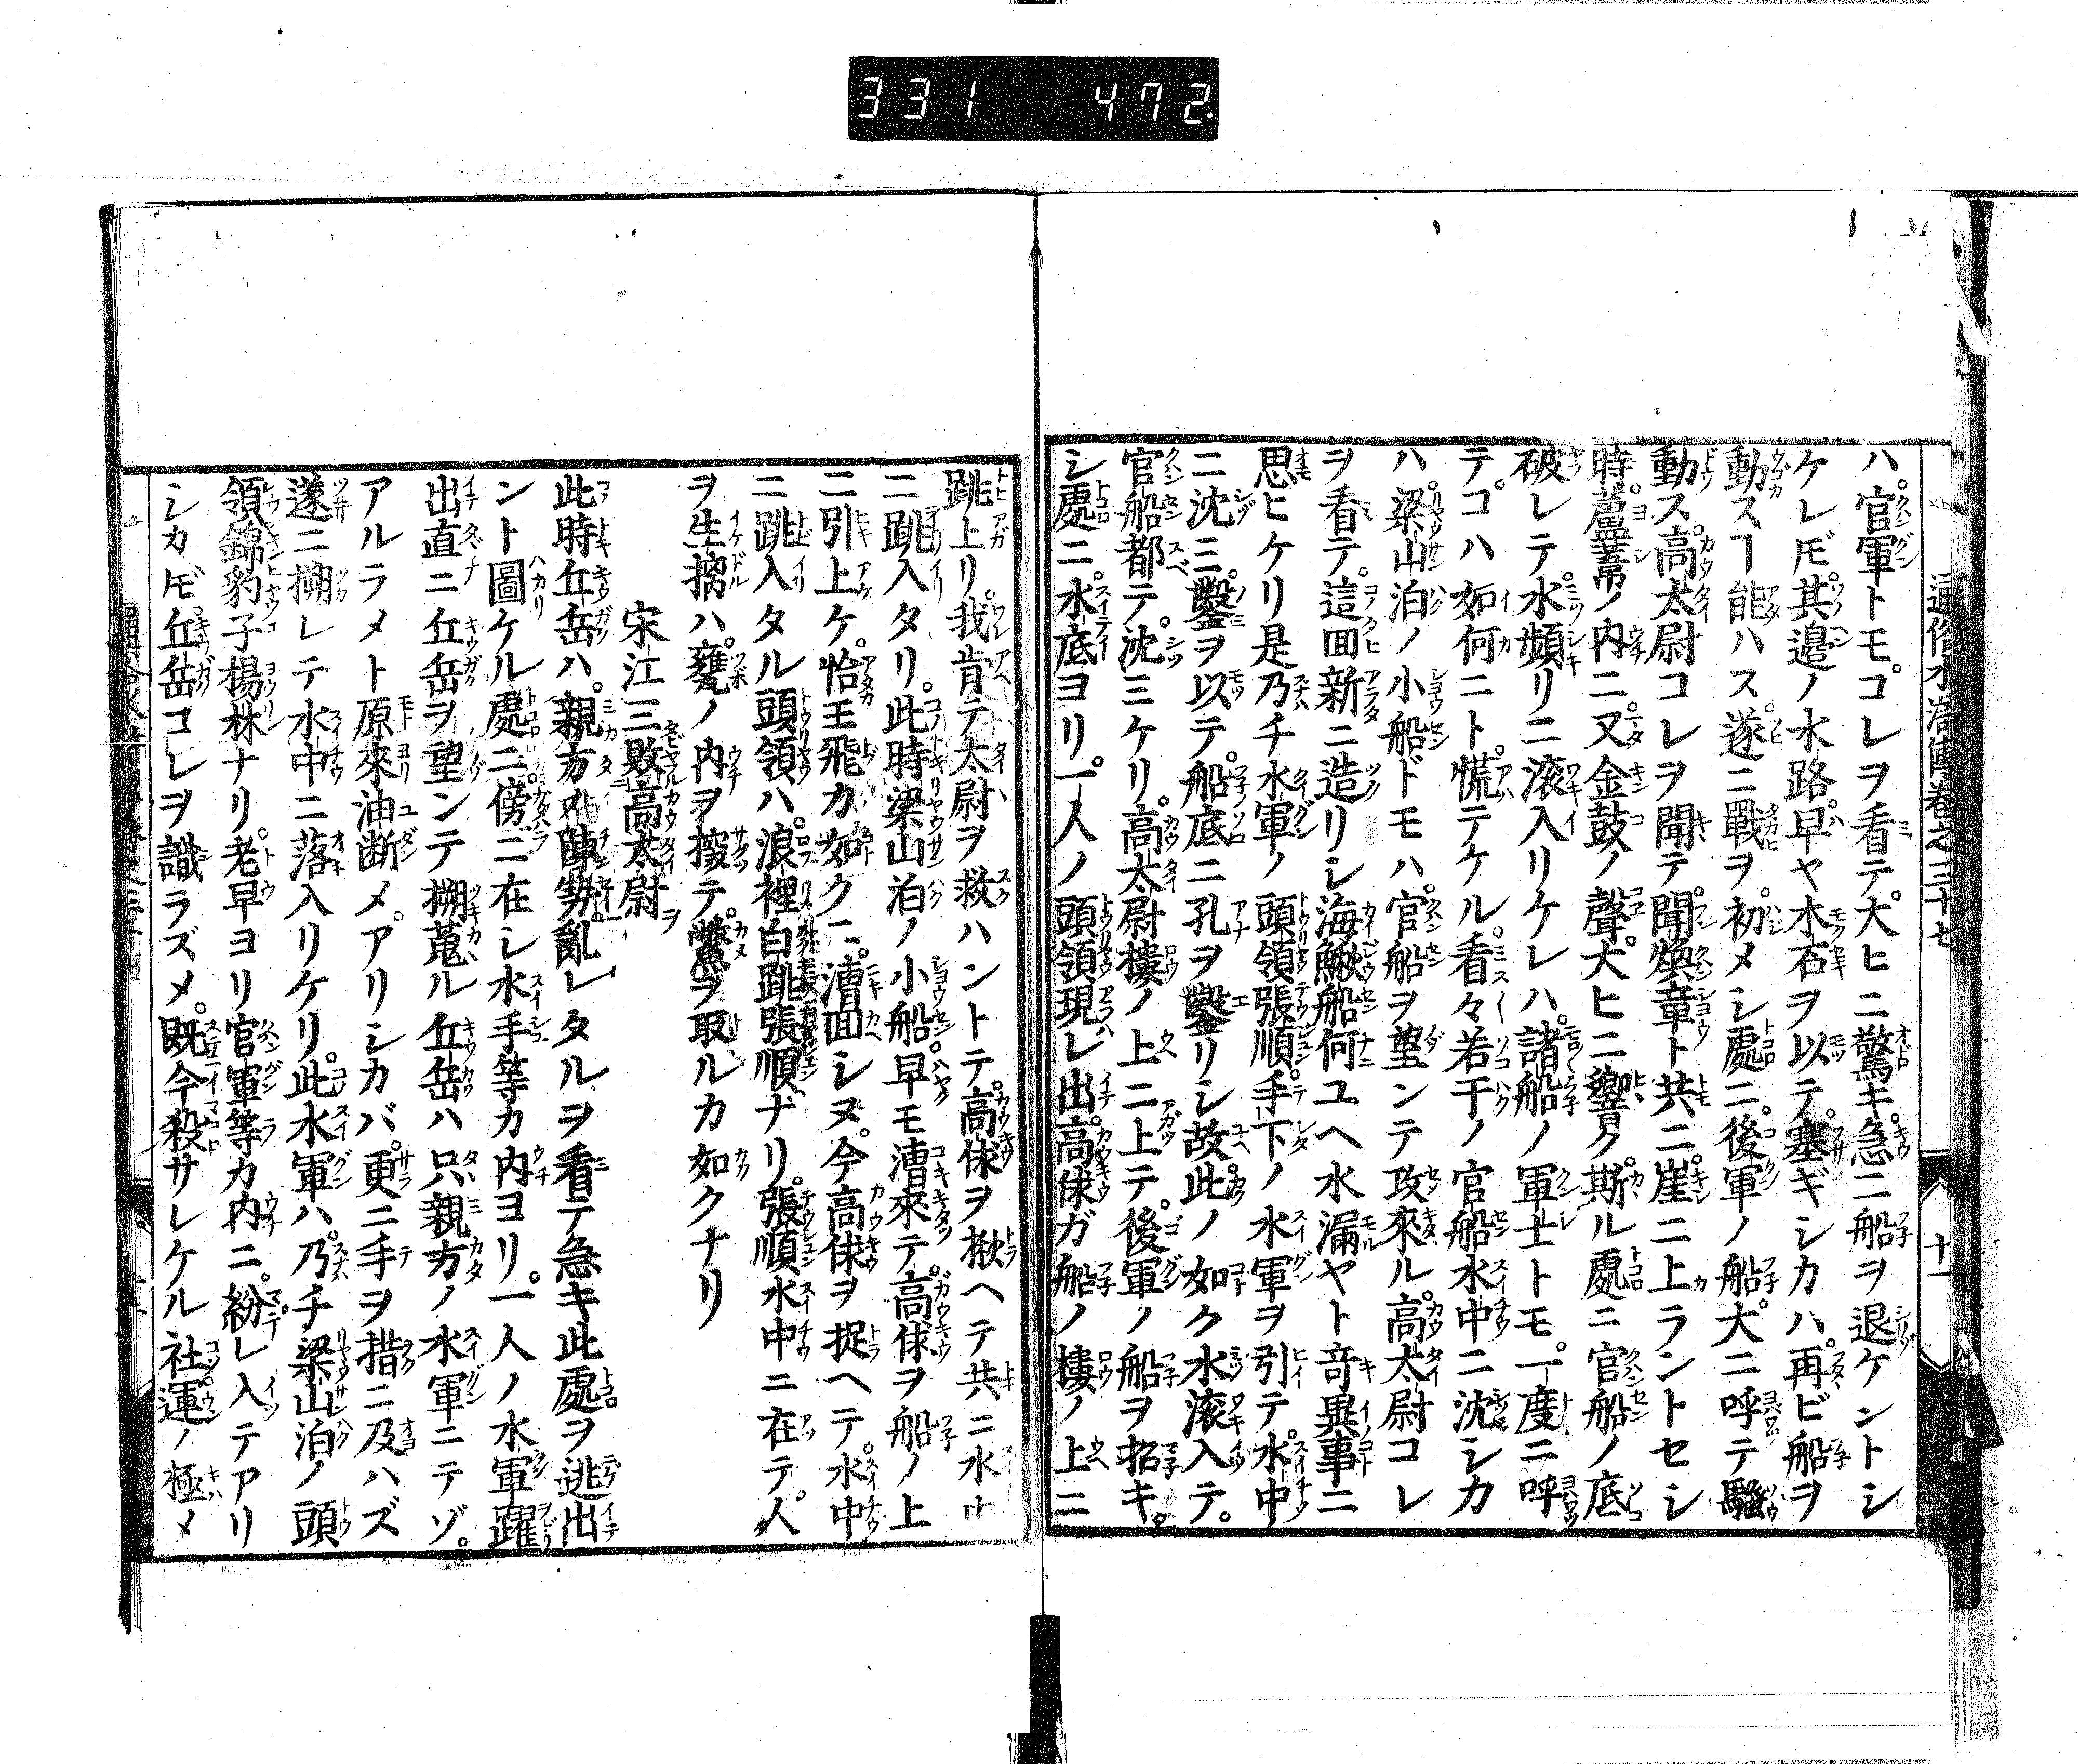 331 472
通俗水滸傳卷之三十七 十一
ハ。官軍トモ。コレヲ看テ。大ヒニ驚キ。急ニ船ヲ退ケントシ
ケレ𪜈。其邉ノ水路。早ヤ木石ヲ以テ。塞ギシカハ。再ビ船ヲ
動スヿ能ハス。遂ニ戰ヲ初メシ處ニ。後軍ノ船。大ニ呼テ騷
動ス。高太尉コレヲ聞テ。聞煥章ト共ニ。崖ニ上ラントセシ
時。蘆葦ノ内ニ。又金鼓ノ聲。大ヒニ響ク。斯ル處ニ官船ノ底
破レテ。水頻リニ滚入リケレハ。諸船ノ軍士トモ。一度ニ呼
テ。コハ如何ニト。慌テケル。看々若干ノ官船水中ニ沈シカ
ハ。梁山泊ノ小船ドモハ。官船ヲ望ンテ攻來ル。高太尉コレ
ヲ看テ。這回新ニ造リシ海鰍船何ユヘ水漏ヤト竒異事ニ
思ヒケリ是乃チ水軍ノ頭領張順。手下ノ水軍ヲ引テ。水中
ニ沈ミ。鑿ヲ以テ。船底ニ孔ヲ鑿リシ故。此ノ如ク水滚入テ。
官船都テ。沈ミケリ。高太尉樓ノ上ニ上テ。後軍ノ船ヲ招キ。
シ處ニ。水底ヨリ。一人ノ頭領現レ出。高俅ガ船ノ樓ノ上ニ
跳上リ。我肯テ太尉ヲ救ハントテ。高俅ヲ揪ヘテ共ニ水中
ニ跳入タリ。此時梁山泊ノ小船早モ漕來テ。高俅ヲ船ノ上
ニ引上ケ。恰モ飛カ如クニ。漕囬シヌ。今高俅ヲ捉ヘテ。水中
ニ跳入タル頭領ハ。浪裡白跳張順ナリ。張順水中ニ在テ。人
ヲ生擒ハ。甕ノ内ヲ搜テ。鱉ヲ取ルカ如クナリ
宋江三敗高太尉
此時丘岳ハ。親方ノ陣勢。亂レタルヲ看テ急キ此處ヲ逃出
ント圖ケル處ニ。傍ニ在シ水手等カ内ヨリ。一人ノ水軍躍
出直ニ丘岳ヲ望ンテ搠蒐ル丘岳ハ只親方ノ水軍ニテゾ。
アルラメト原來油断メ。アリシカバ。更ニ手ヲ措ニ及ハズ
遂ニ搠レテ水中ニ落入リケリ。此水軍ハ。乃チ梁山泊ノ頭
領錦豹子楊林ナリ。老早ヨリ官軍等カ内ニ。紛レ入テアリ
シカ𪜈丘岳コレヲ識ラズメ。既今殺サレケル社運ノ極メ